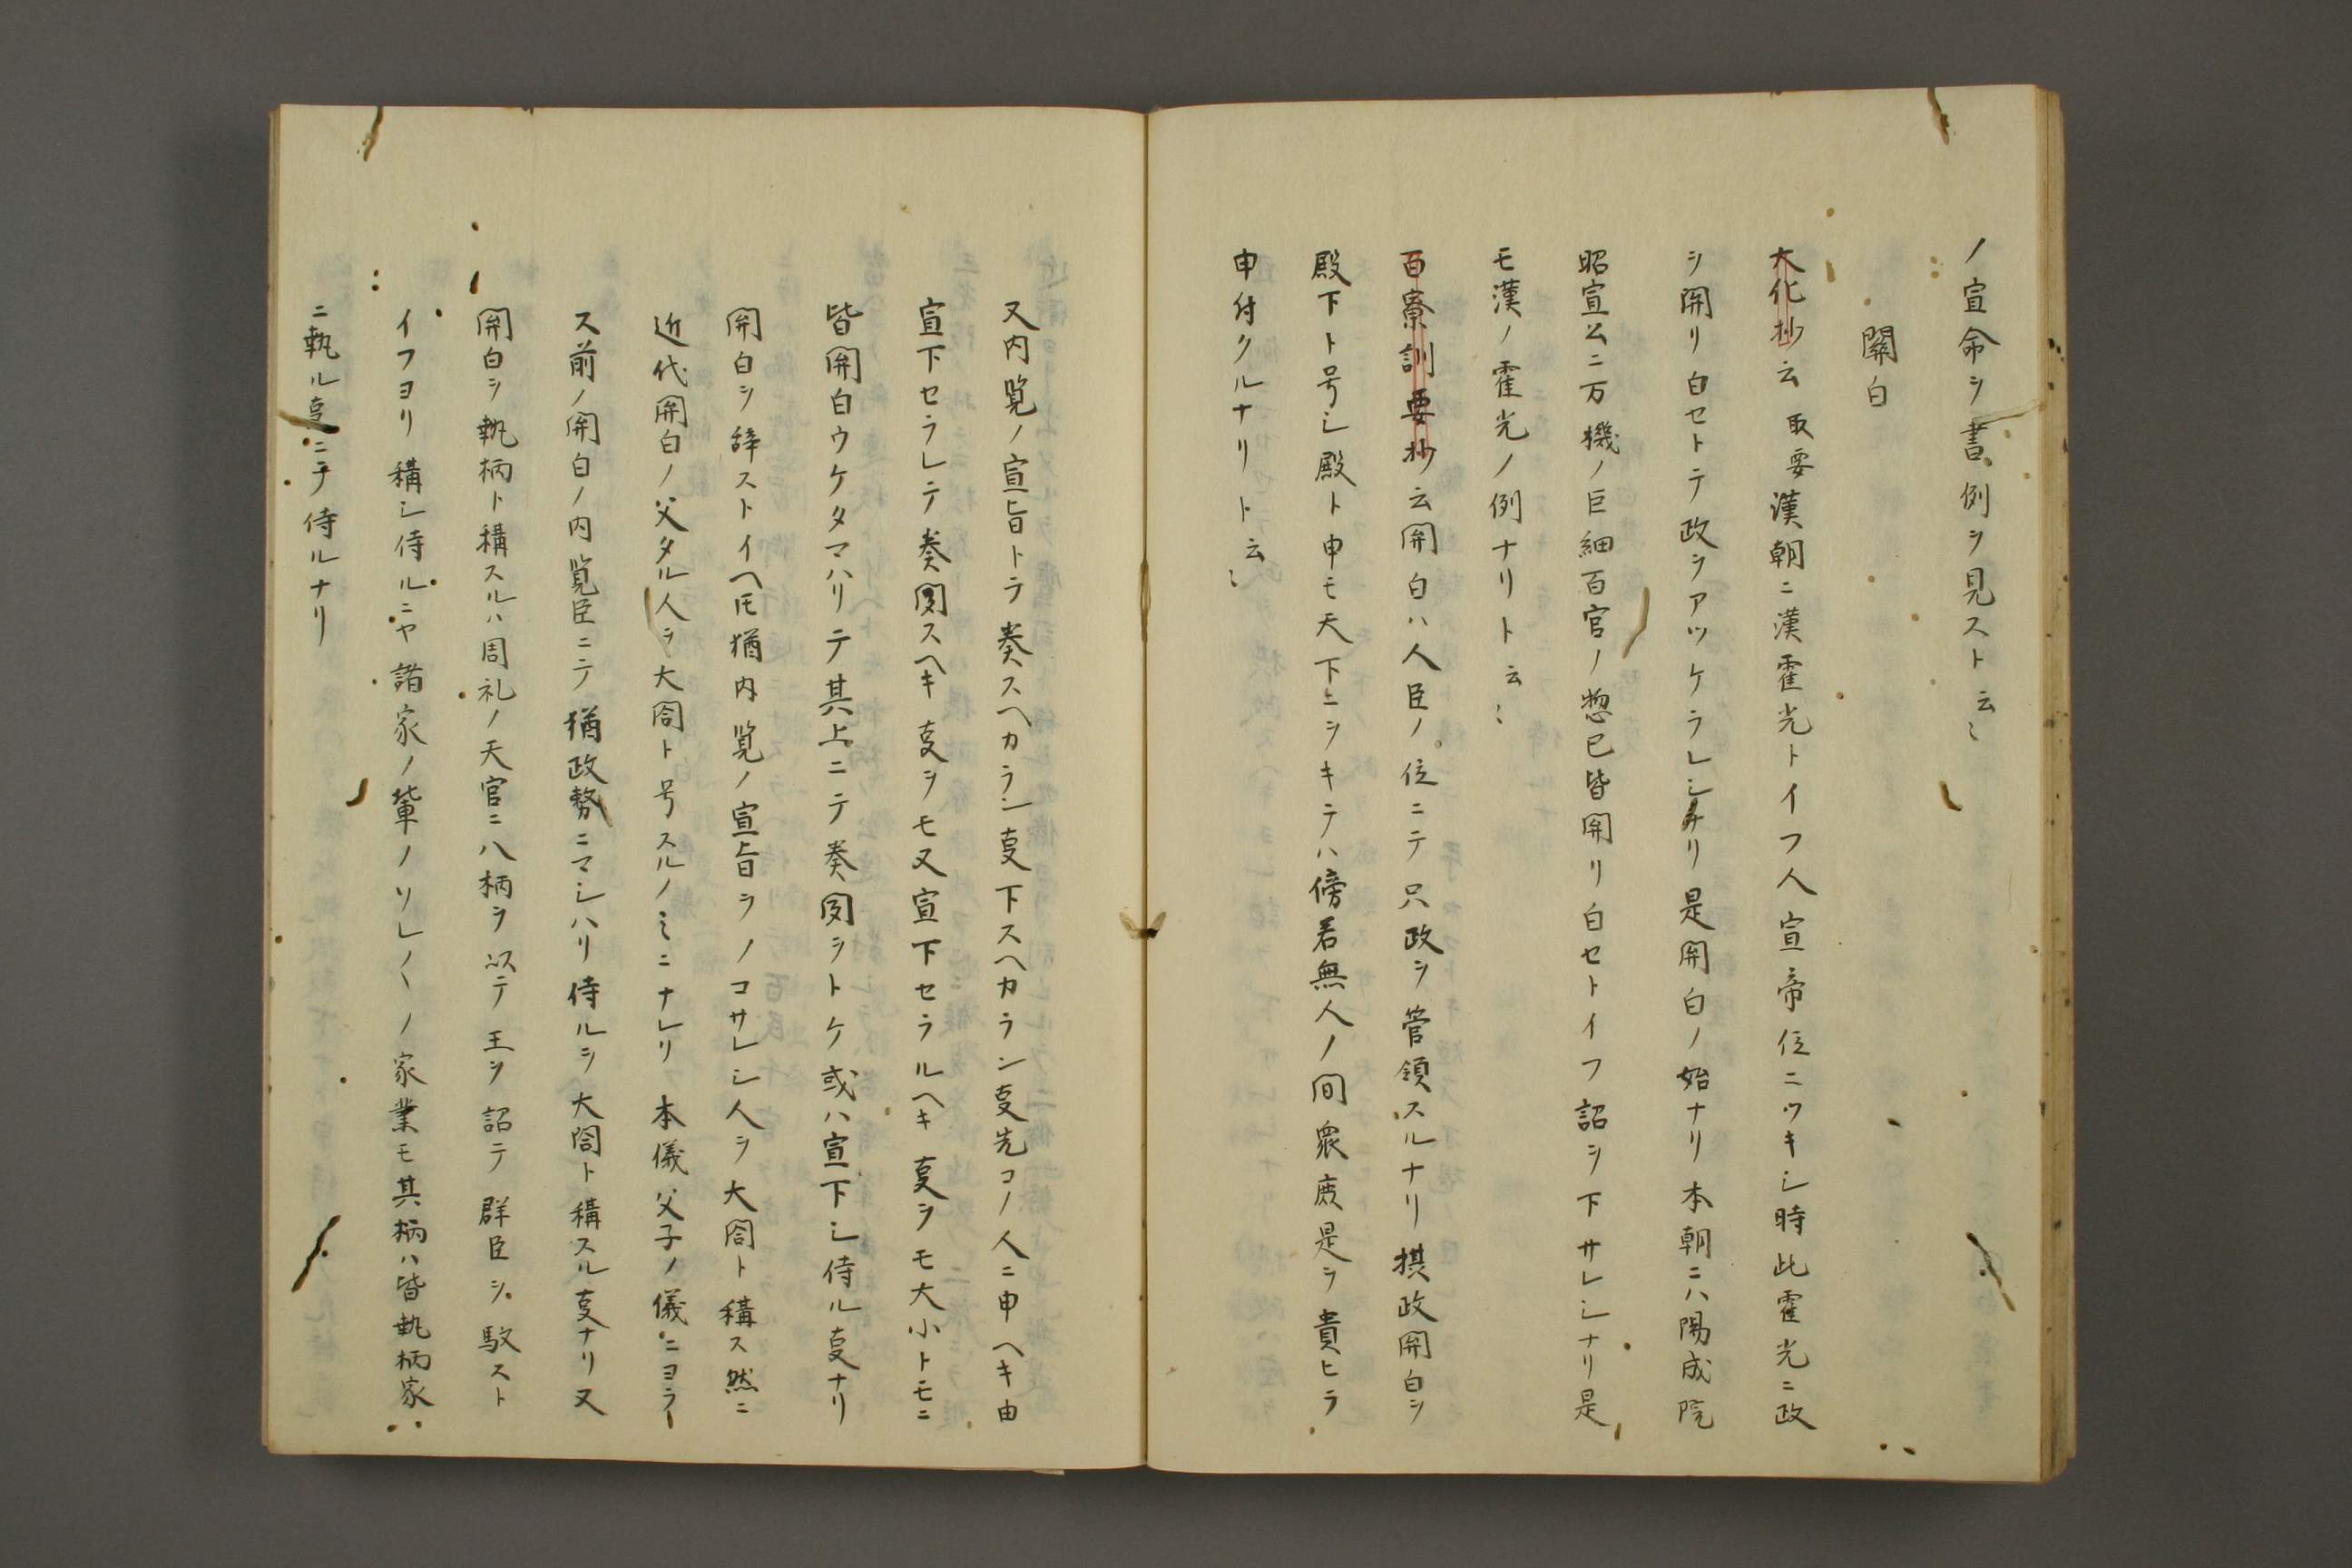 ノ宣命ヲ書例ヲ見スト云〻
關白
大化抄云取要漢朝ニ漢霍光トイフ人宣帝位ニツキシ時此霍光ニ政
ヲ関リ白セトテ政ヲアツケラレシヨリ是関白ノ始ナリ本朝ニハ陽成院
昭宣公ニ万機ノ巨細百官ノ惣已皆関リ白セトイフ詔ヲ下サレシナリ是
モ漢ノ霍光ノ例ナリト云〻
百寮訓要抄云関白ハ人臣ノ位ニテ只政ヲ管領スルナリ摂政関白ヲ
殿下ト号シ殿ト申モ天下ニヲキテハ傍若無人ノ間衆庶是ヲ貴ヒテ
申付クルナリト云〻
又内覧ノ宣旨トテ奏スヘカラン㕝下スヘカラン㕝先コノ人ニ申ヘキ由
宣下セラレテ奏聞スヘキ㕝ヲモ又宣下セラルヘキ㕝ヲモ大小トモニ
皆関白ウケタマハリテ其上ニテ奏聞ヲトケ或ハ宣下シ侍ル㕝ナリ
関白ヲ辞ストイヘ𪜈猶内覧ノ宣旨ヲノコサレシ人ヲ大閤ト稱ス然ニ
近代関白ノ父タル人ヲ大閤ト号スルノミニナレリ本儀父子ノ儀ニヨラ
ス前ノ関白ノ内覧臣ニテ猶政務ニマシハリ侍ルヲ大閤ト稱スル㕝ナリ又
関白ヲ執柄ト稱スルハ周礼ノ天官ニ八柄ヲ以テ王ヲ詔テ群臣ヲ馭スト
イフヨリ稱シ侍ルニヤ諸家ノ輩ノソレ〳〵ノ家業モ其柄ハ皆執柄家
ニ執ル㕝ニテ侍ルナリ